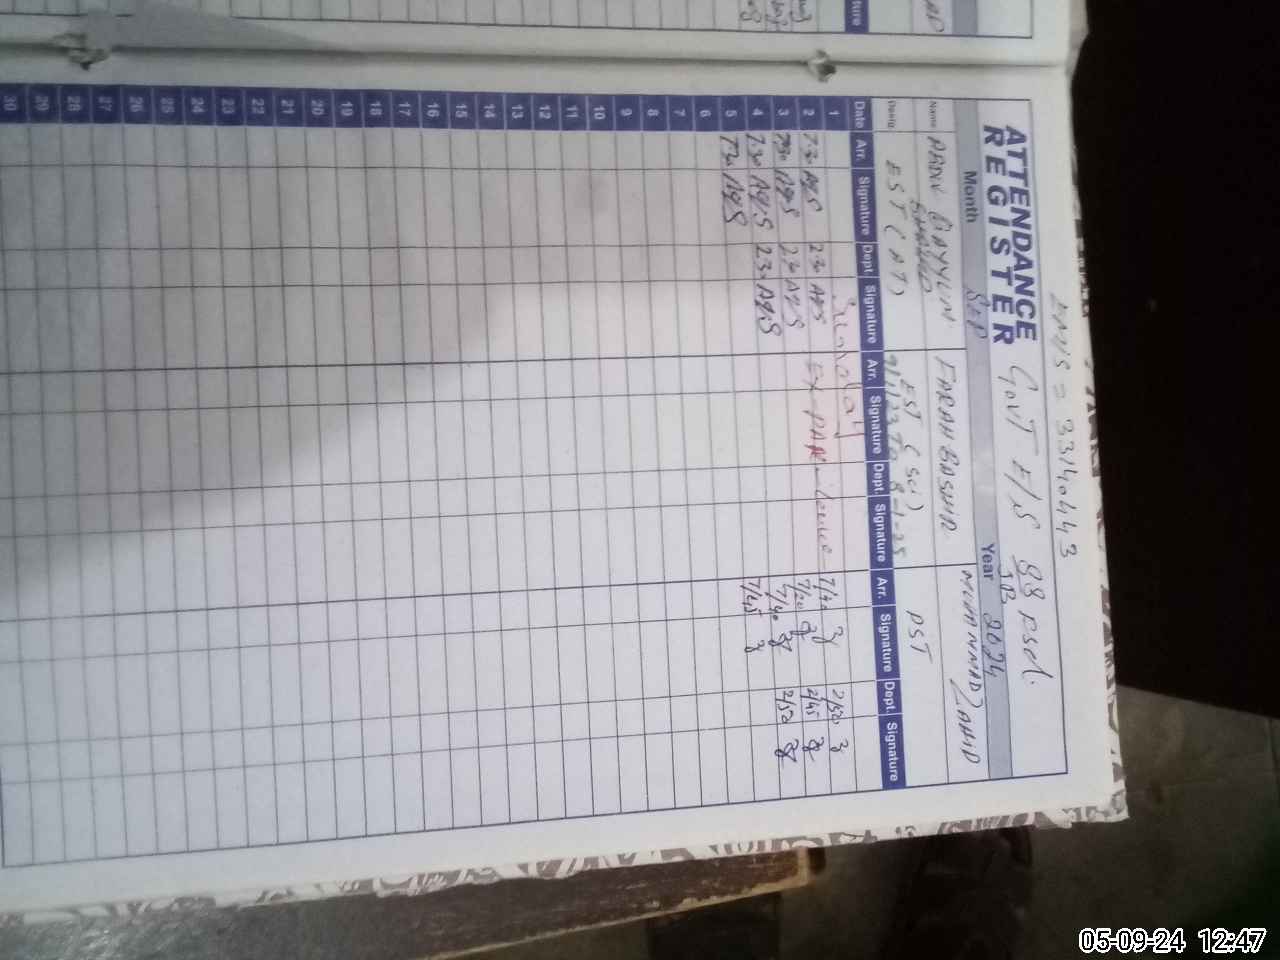 EMIS = 33140443
ATTENDANCE REGISTER
GOVT E/S 98 RSd.
JB
Month SEP Year 2024
Name ABDUL QAYYUM FARAH BASHIR MUHAMMAD ZAHID
Desig. EST (AT) EST (Sci) PST
9/1/23 To 8-1-25
Date Arr. Signature Dept. Signature Arr. Signature Dept. Signature Arr. Signature Dept. Signature
1 Sunday
2 7:30 AQS 2:30 AQS EX-PAK-Leave 7/40 2/50
3 7:30 AQS 2:30 AQS 7/20 2/45
4 7:30 AQS 2:30 AQS 7/40 2/50
5 7:30 AQS 7/45
6
7
8
9
10
11
12
13
14
15
16
17
18
19
20
21
22
23
24
25
26
27
28
29
30
05-09-24 12:47